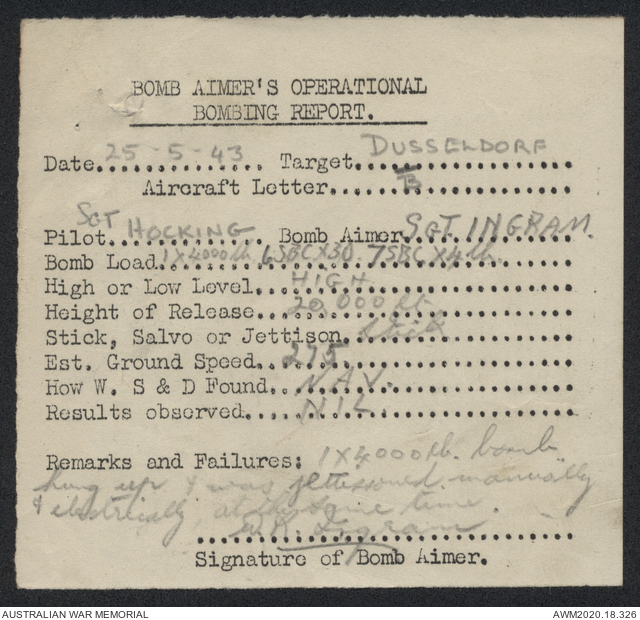 BOMB AIMER'S OPERATIONAL
BOMBING REPORT.
Date..25-5-43.. Target. DUSSELDORF
Aircraft Letter......
Pilot. Sgt HOCKING Bomb Aimer. SGT INGRAM.
Bomb Load. 1x4000lb. 6SBCX30. 7SBCX4lb.
High or Low Level... HIGH
Height of Release... 20,000 ft.
Stick, Salvo or Jettison. Stick
Est. Ground Speed.. 275
How W. S & D Found.. NAV.
Results observed.... NIL
Remarks and Failures: 1x4000lb. bomb
hung up & was jettisoned manually
& electrically, at the same time.
Ingram
Signature of Bomb Aimer.
AUSTRALIAN WAR MEMORIAL
AWM2020.18.326